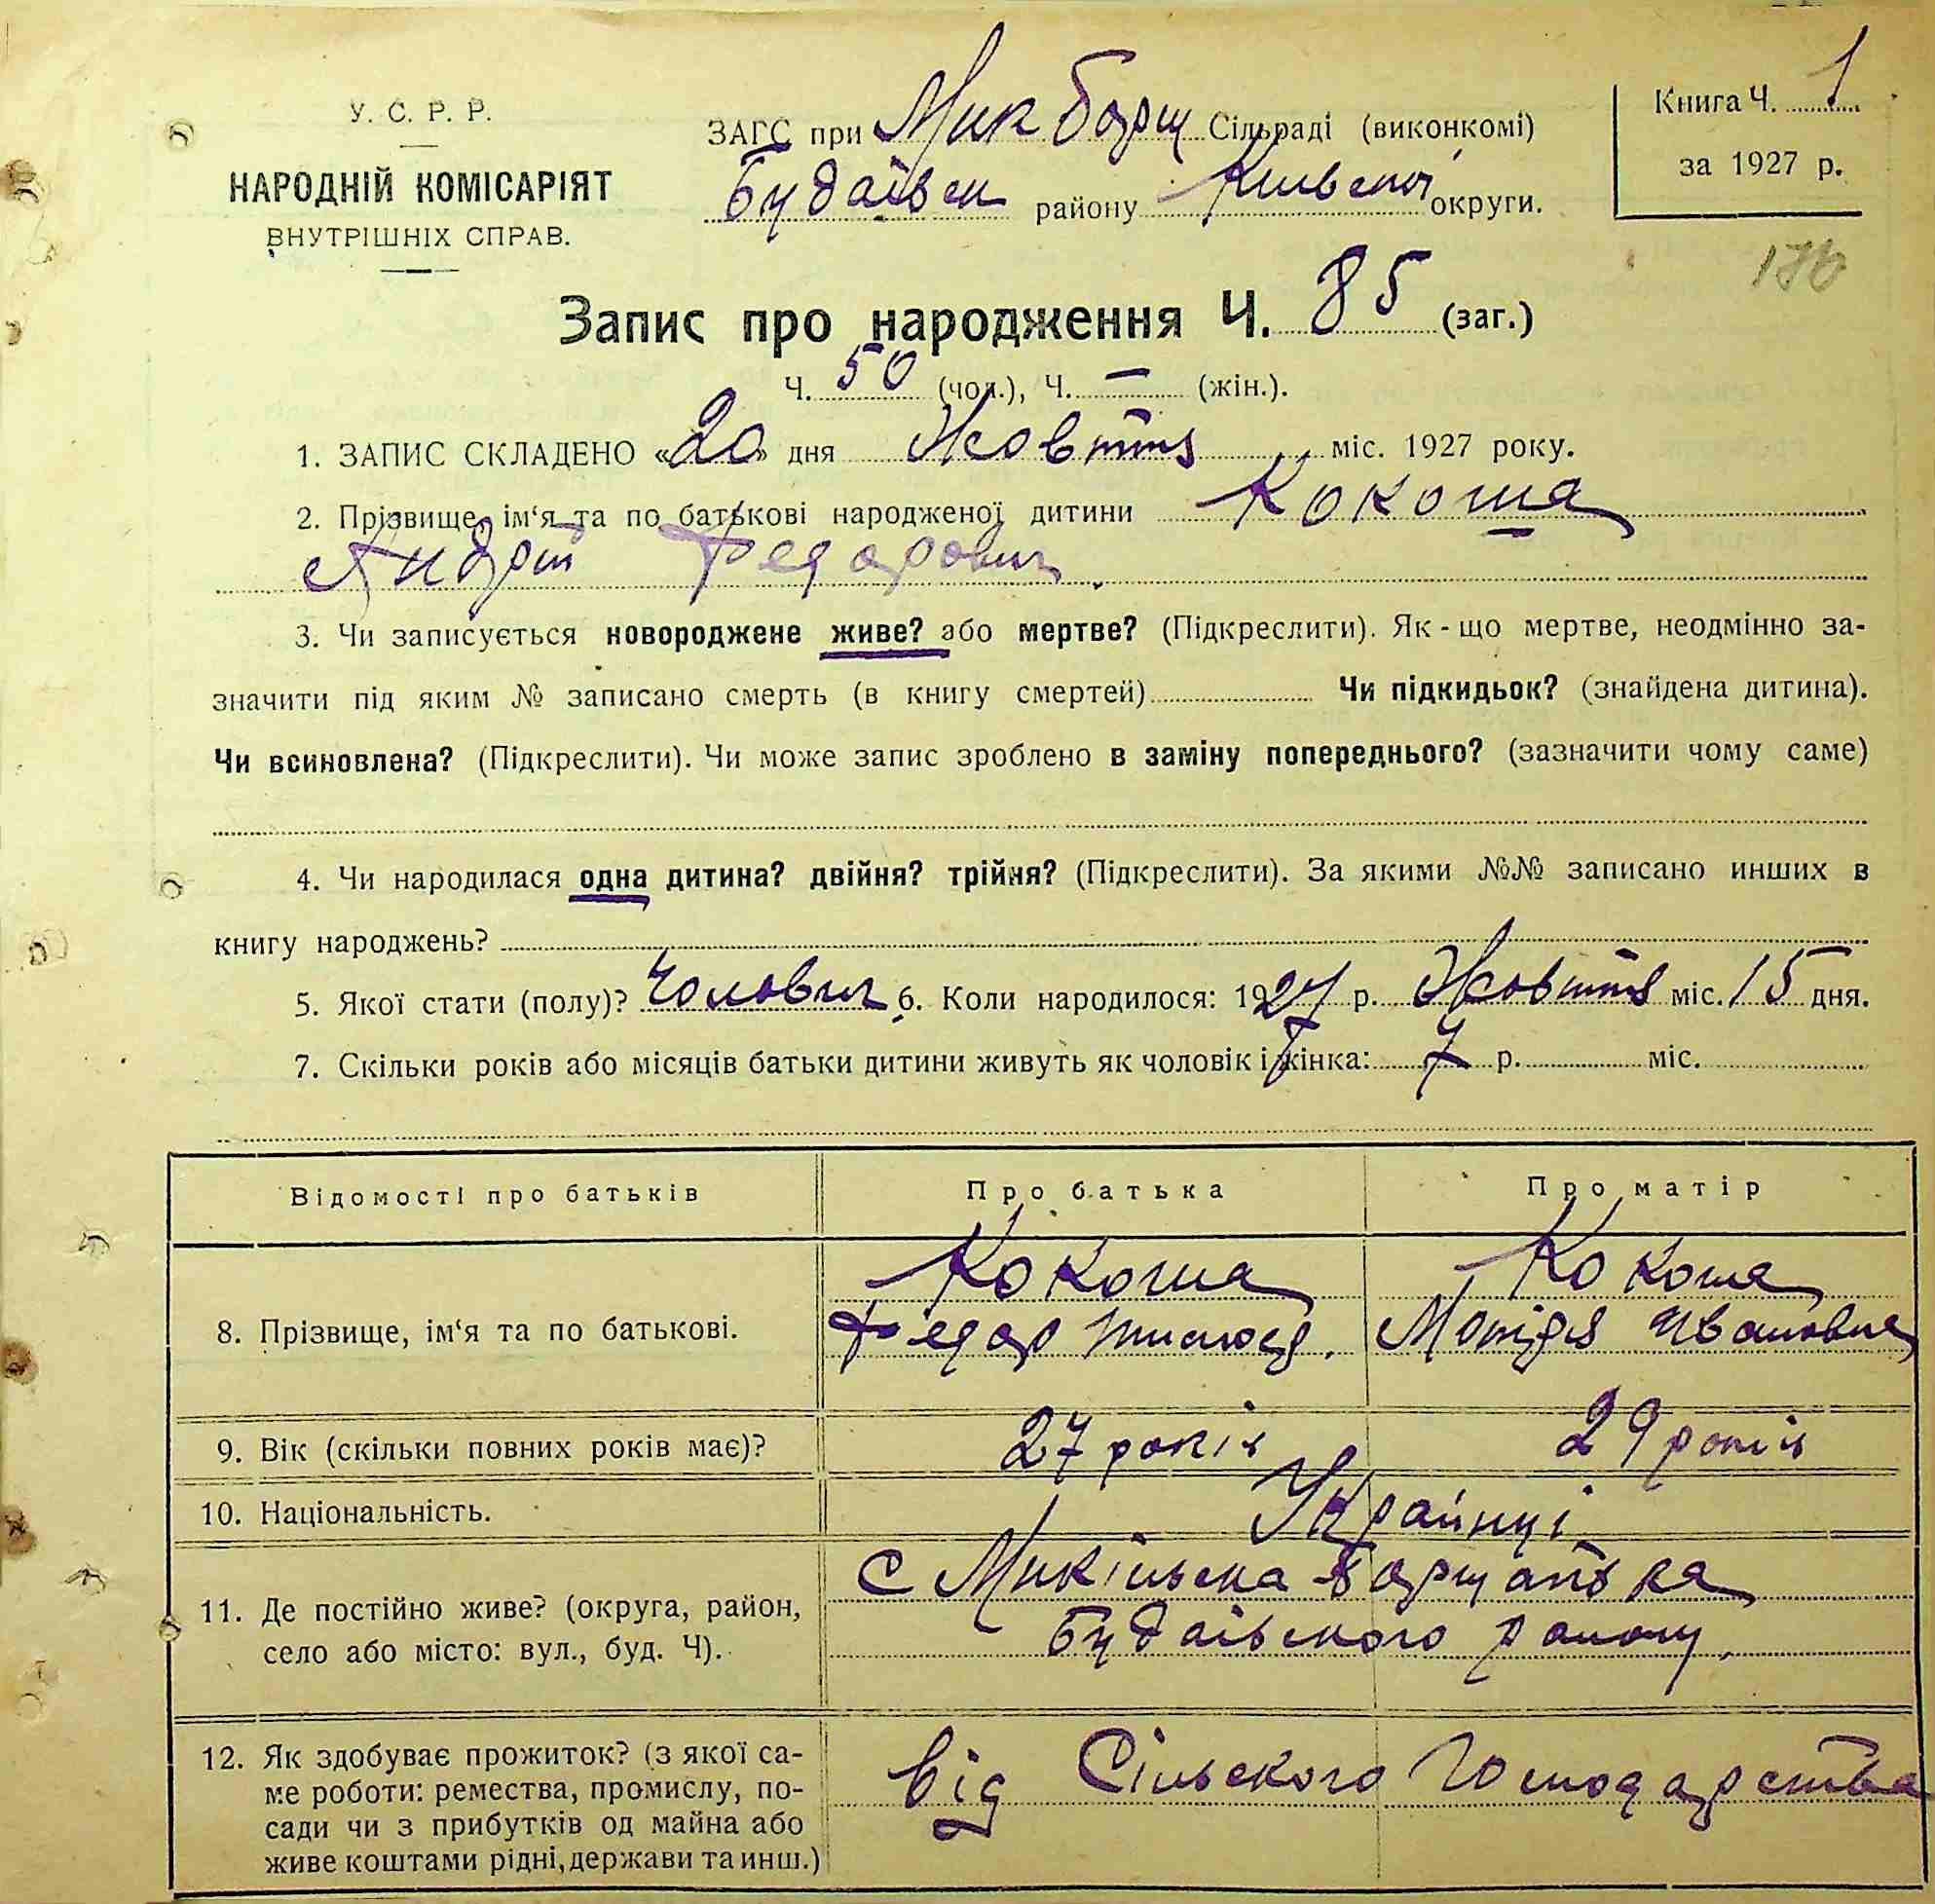 У. С. Р. Р.
НАРОДНІЙ КОМІСАРІЯТ
ВНУТРІШНІХ СПРАВ.
ЗАГС при Мик Борщ Сільраді (виконкомі)
Будаївск району Київської округи.
Книга Ч. 1
за 1927 р.
176
Запис про народження Ч. 85 (заг.)
Ч. 50 (чол.), Ч. — (жін.).
1. ЗАПИС СКЛАДЕНО «20» дня Жовтня міс. 1927 року.
2. Прізвище, ім‘я та по батькові народженої дитини Кокоша
Андрій Федорович.
3. Чи записується новороджене живе? або мертве? (Підкреслити). Як-що мертве, неодмінно за-
значити під яким № записано смерть (в книгу смертей) Чи підкидьок? (знайдена дитина).
Чи всиновлена? (Підкреслити). Чи може запис зроблено в заміну попереднього? (зазначити чому саме)
4. Чи народилася одна дитина? двійня? трійня? (Підкреслити). За якими №№ записано инших в
книгу народжень?
5. Якої стати (полу)? Чоловіч 6. Коли народилося: 1927 р. Жовтня міс. 15 дня.
7. Скільки років або місяців батьки дитини живуть як чоловік і жінка: 7 р. міс.
Відомості про батьків Про батька Про матір
Кокоша Кокоша
8. Прізвище, ім‘я та по батькові. Федор Мотря Ивановна
9. Вік (скільки повних років має)? 27 років 29 років
10. Національність. Українці
11. Де постійно живе? (округа, район, село або місто: вул., буд. Ч). с Микільска Борщагівка
Будаївського району.
12. Як здобуває прожиток? (з якої са-
ме роботи: ремества, промислу, по- від Сільского Господарства
сади чи з прибутків од майна або
живе коштами рідні, держави та инш.)